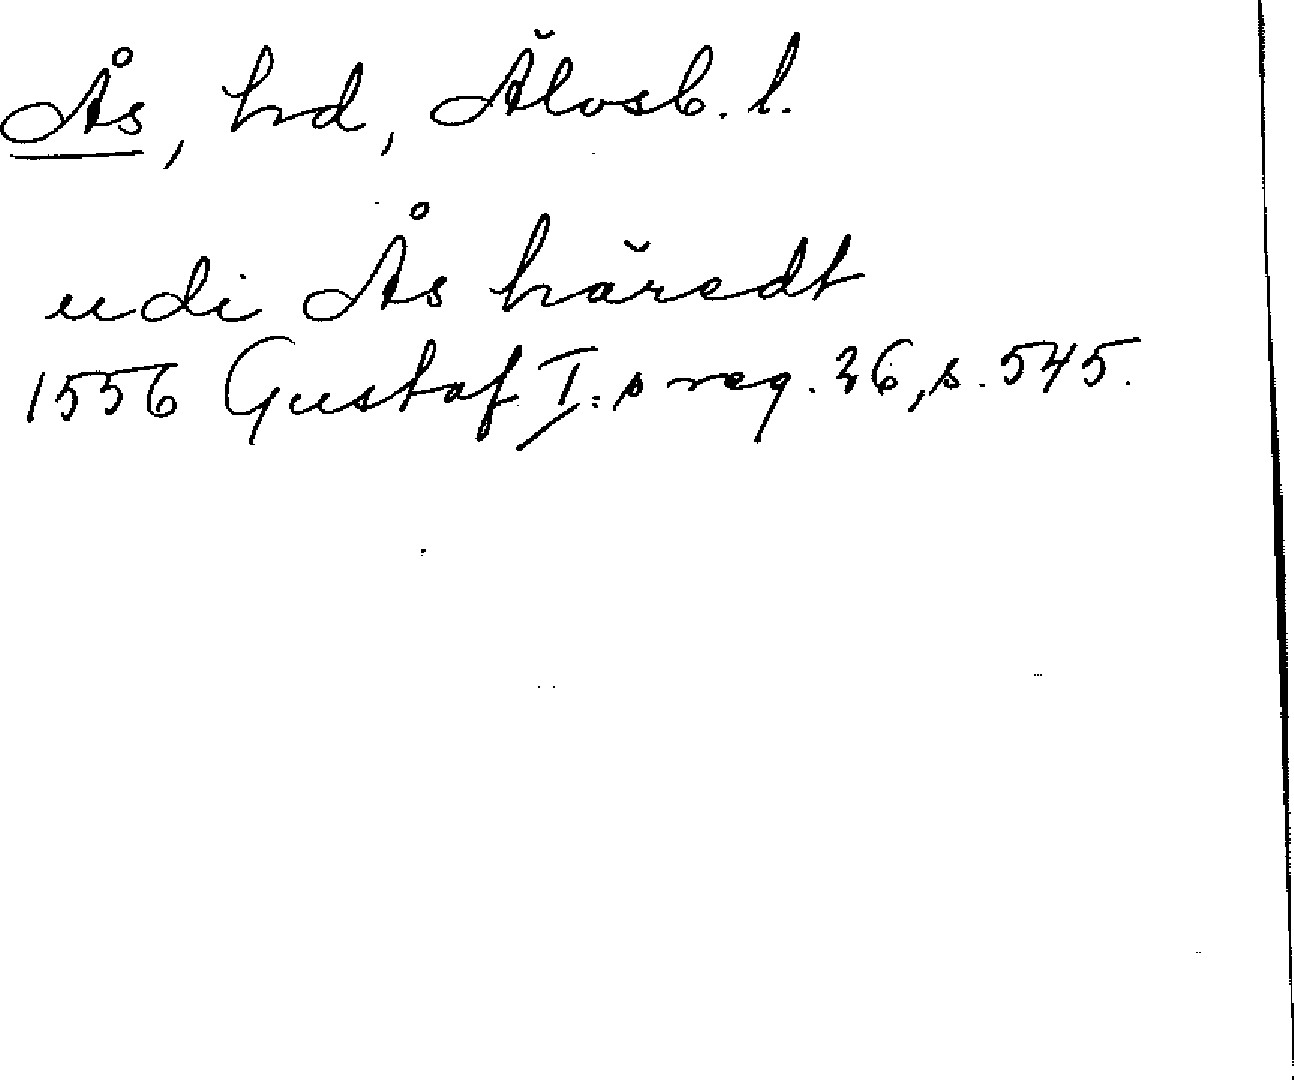 Ås, hd, Älvsb. l.
udi Ås häredt
1556 Gustaf I:s reg. 26, s. 545.